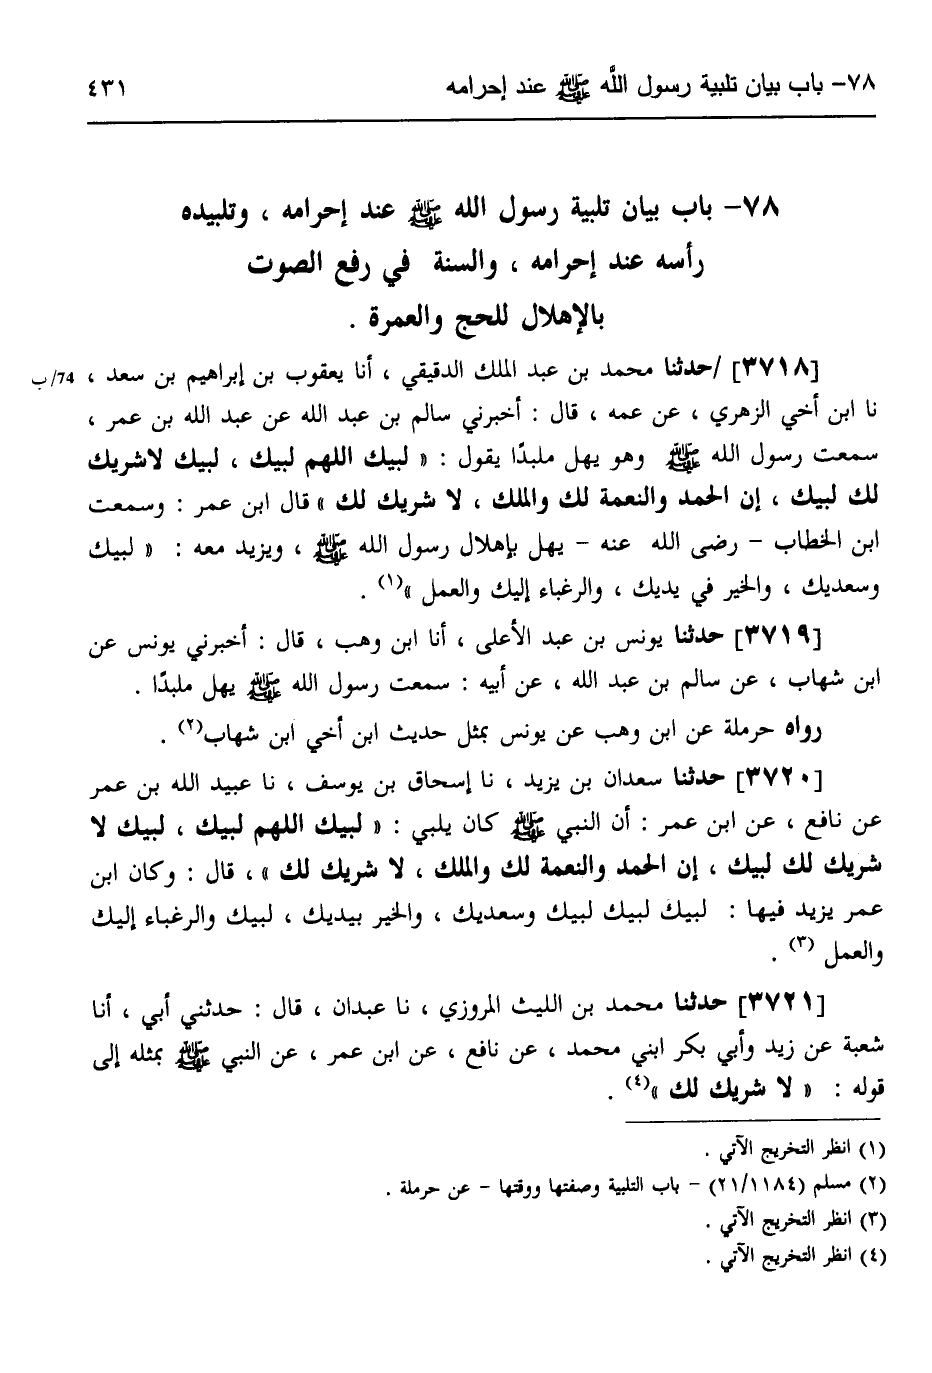 ٧٨- باب بيان تلبية رسول اللَّه ﷺ عند إحرامه ٤٣١
٧٨- باب بيان تلبية رسول الله ﷺ عند إحرامه ، وتلبيده
رأسه عند إحرامه ، والسنة في رفع الصوت
بالإهلال للحج والعمرة .
[٣٧١٨] /حدثنا محمد بن عبد الملك الدقيقي ، أنا يعقوب بن إبراهيم بن سعد ، 74/ب
نا ابن أخي الزهري ، عن عمه ، قال : أخبرني سالم بن عبد الله عن عبد الله بن عمر ،
سمعت رسول الله ﷺ وهو يهل ملبدًا يقول : « لبيك اللهم لبيك ، لبيك لاشريك
لك لبيك ، إن الحمد والنعمة لك والملك ، لا شريك لك » قال ابن عمر : وسمعت
ابن الخطاب - رضى الله عنه - يهل بإهلال رسول الله ﷺ ، ويزيد معه : « لبيك
وسعديك ، والخير في يديك ، والرغباء إليك والعمل »(١) .
[٣٧١٩] حدثنا يونس بن عبد الأعلى ، أنا ابن وهب ، قال : أخبرني يونس عن
ابن شهاب ، عن سالم بن عبد الله ، عن أبيه : سمعت رسول الله ﷺ يهل ملبدًا .
رواه حرملة عن ابن وهب عن يونس بمثل حديث ابن أخي ابن شهاب(٢) .
[٣٧٢٠] حدثنا سعدان بن يزيد ، نا إسحاق بن يوسف ، نا عبيد الله بن عمر
عن نافع ، عن ابن عمر : أن النبي ﷺ كان يلبي : « لبيك اللهم لبيك ، لبيك لا
شريك لك لبيك ، إن الحمد والنعمة لك والملك ، لا شريك لك » ، قال : وكان ابن
عمر يزيد فيها : لبيك لبيك لبيك وسعديك ، والخير بيديك ، لبيك والرغباء إليك
والعمل (٣) .
[٣٧٢١] حدثنا محمد بن الليث المروزي ، نا عبدان ، قال : حدثني أبي ، أنا
شعبة عن زيد وأبي بكر ابني محمد ، عن نافع ، عن ابن عمر ، عن النبي ﷺ بمثله إلى
قوله : « لا شريك لك »(٤) .
(١) انظر التخريج الآتي .
(٢) مسلم (٢١/١١٨٤) - باب التلبية وصفتها ووقتها - عن حرملة .
(٣) انظر التخريج الآتي .
(٤) انظر التخريج الآتي .